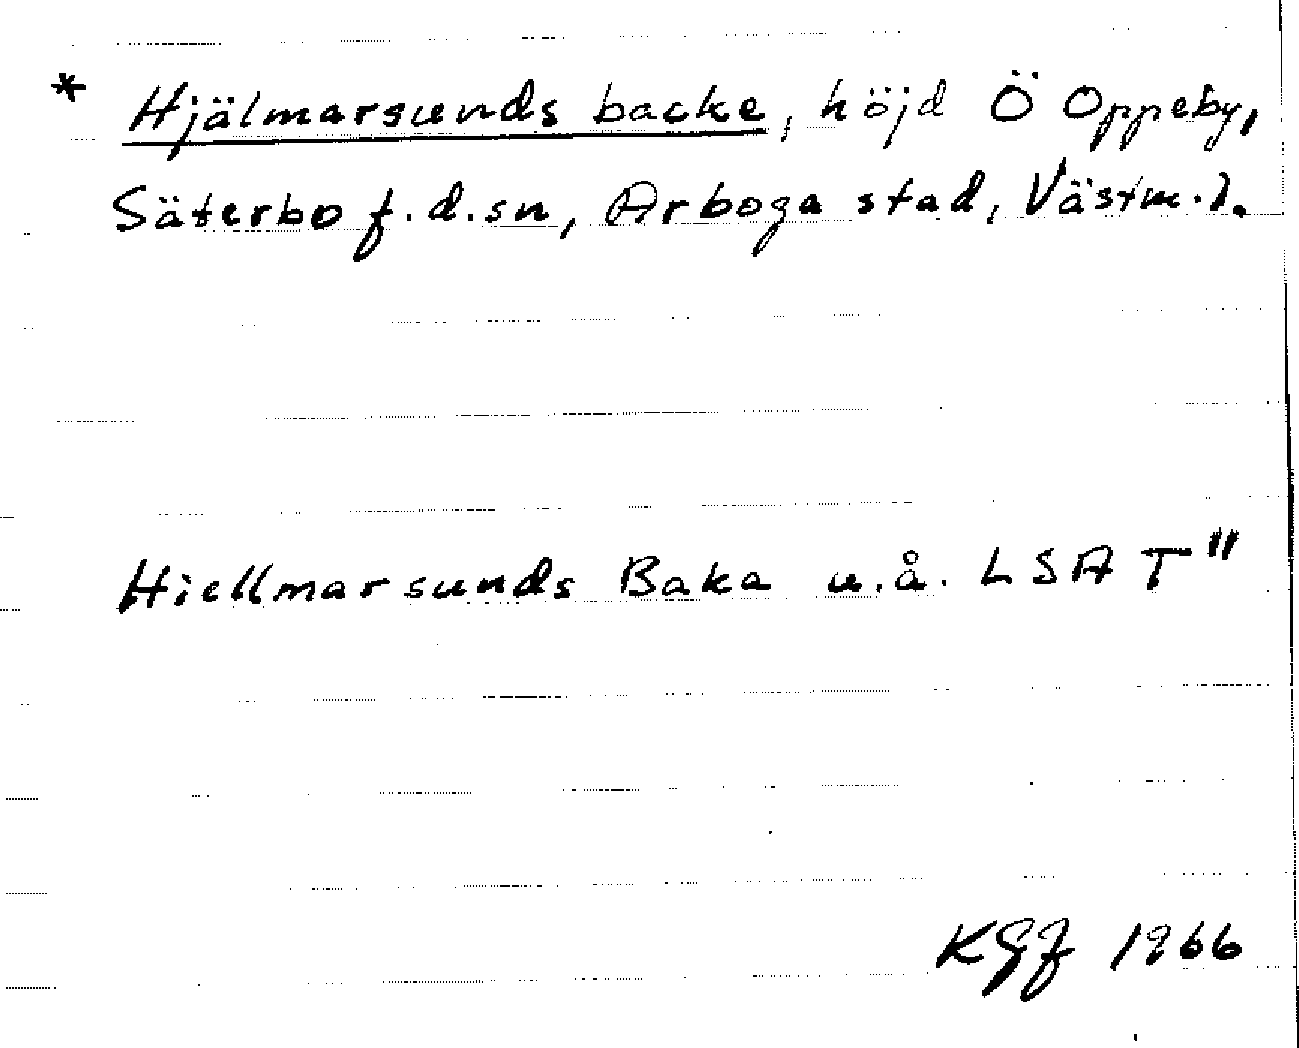 * Hjälmarsunds backe, höjd Ö Oppeby,
Säterbo f.d.sn, Arboga stad, Västm.l.
Hiellmarsunds Baka u.å. LSA T"
KGJ 1966